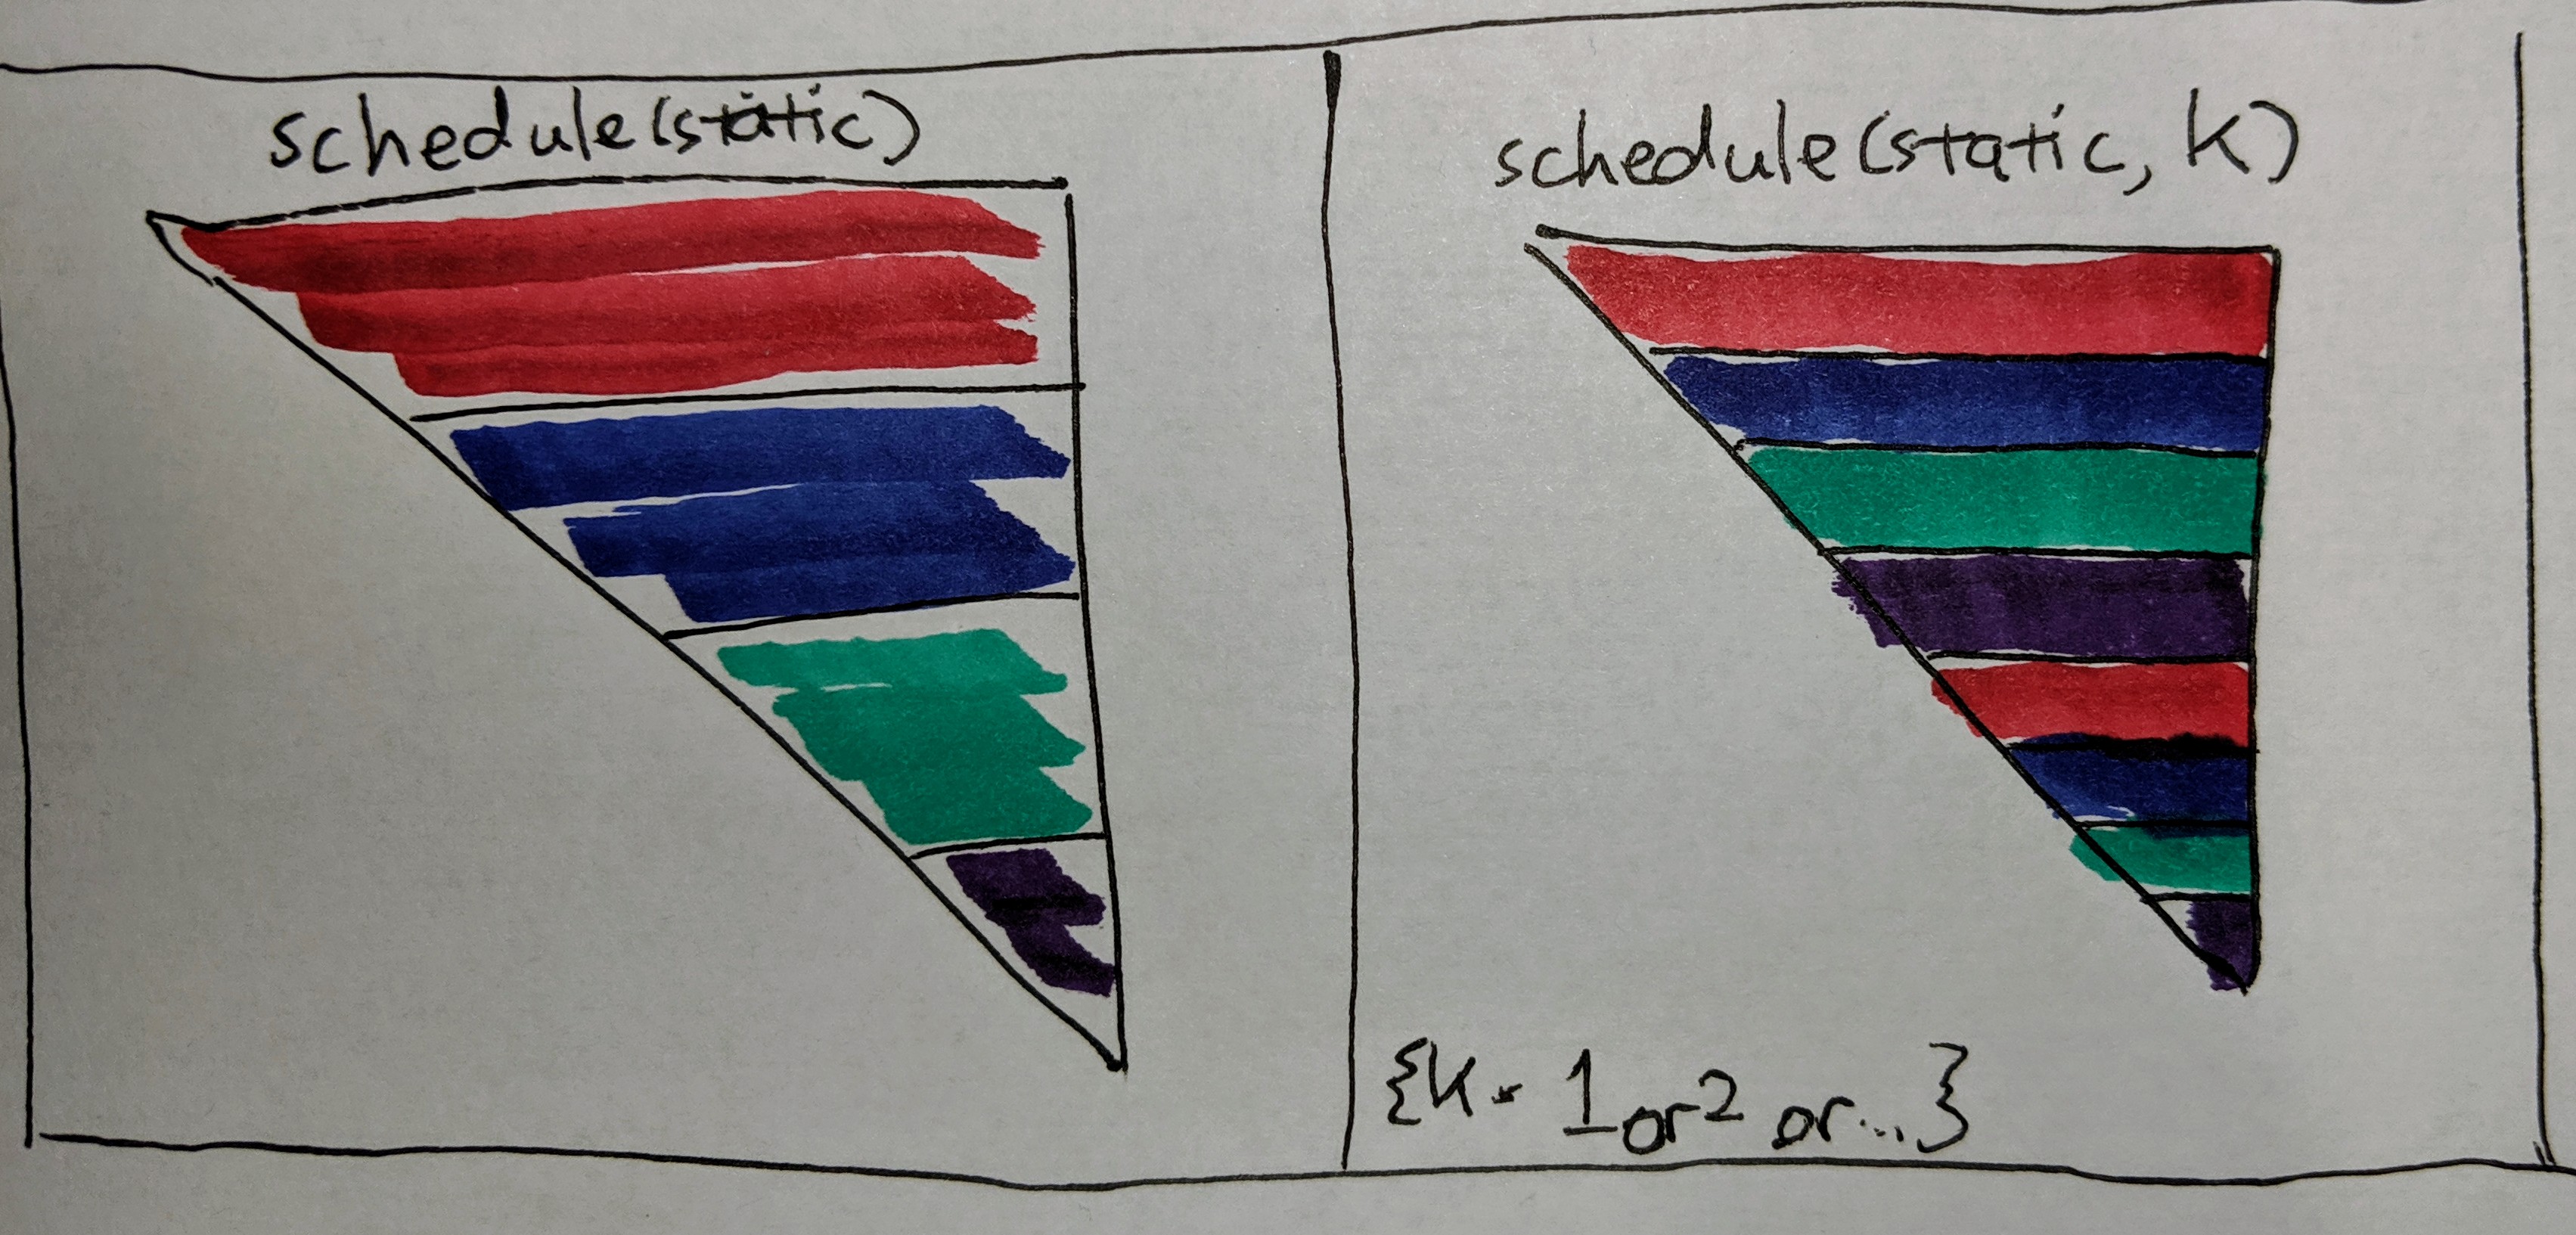 schedule(static)
schedule(static, k)
{k = 1 or 2 or...}